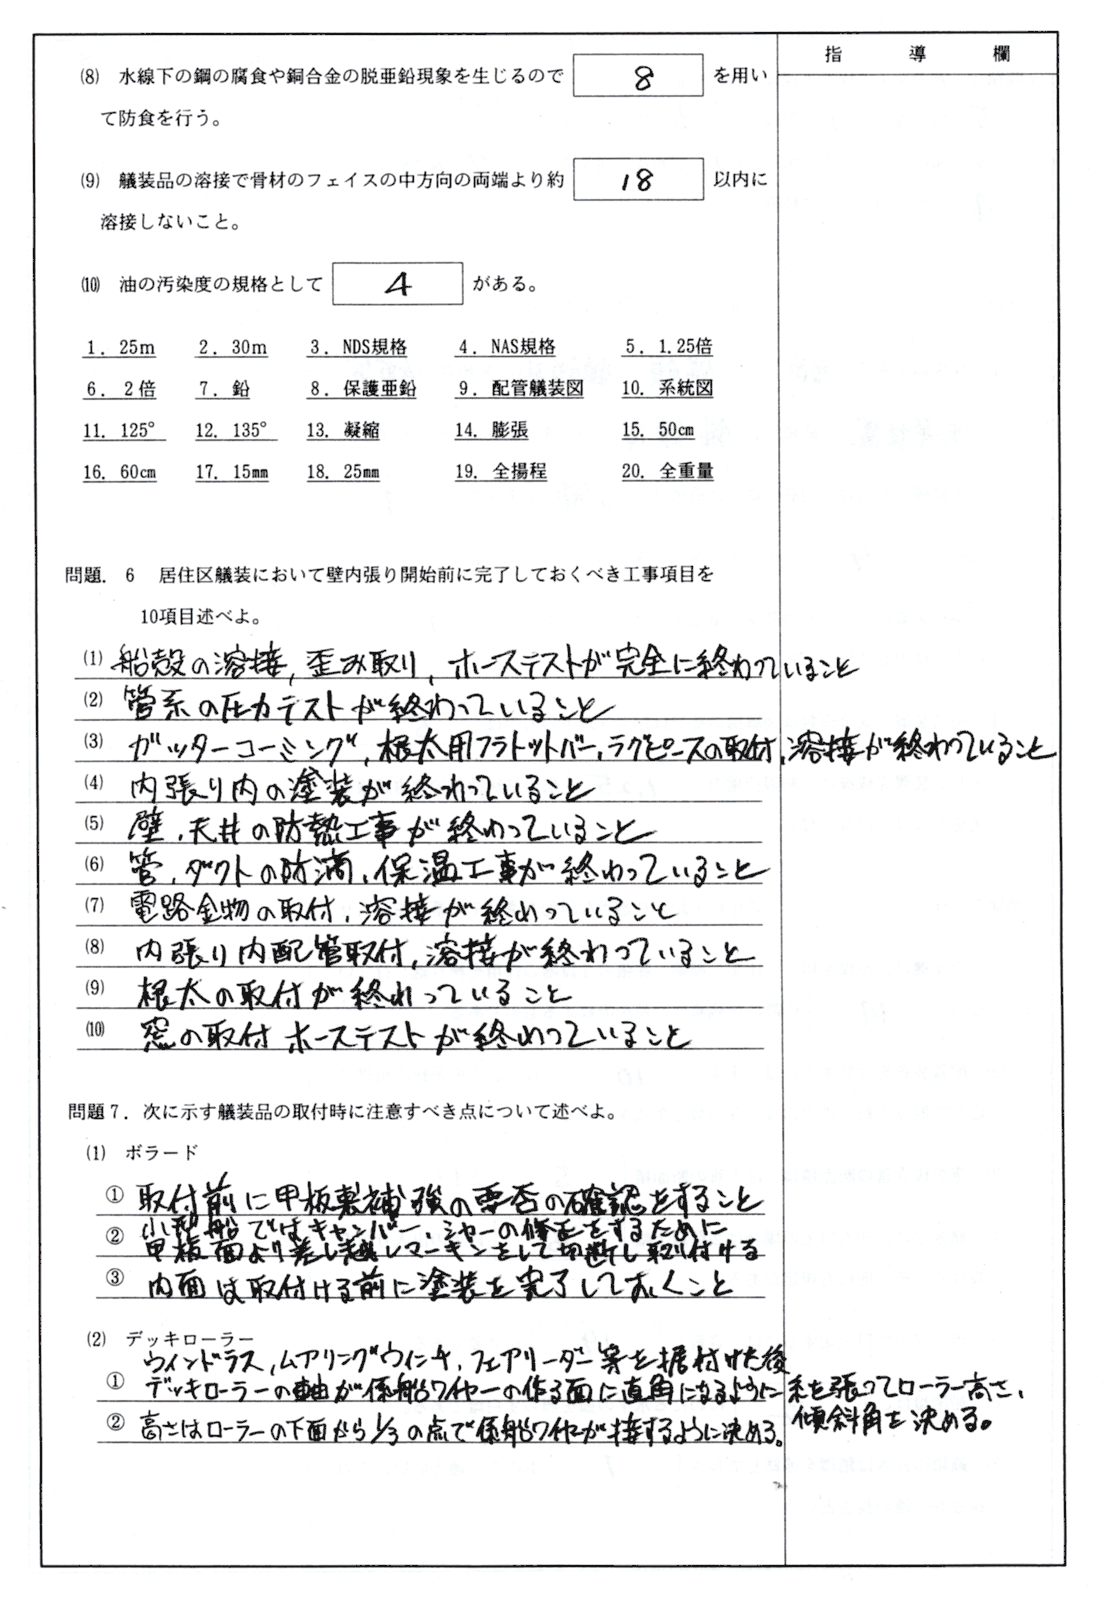 指導欄
(8) 水線下の鋼の腐食や銅合金の脱亜鉛現象を生じるので 8 を用い
て防食を行う。
(9) 艤装品の溶接で骨材のフェイスの中方向の両端より約 18 以内に
溶接しないこと。
(10) 油の汚染度の規格として 4 がある。
1. 25m 2. 30m 3. NDS規格 4. NAS規格 5. 1.25倍
6. 2倍 7. 鉛 8. 保護亜鉛 9. 配管艤装図 10. 系統図
11. 125° 12. 135° 13. 凝縮 14. 膨張 15. 50cm
16. 60cm 17. 15mm 18. 25mm 19. 全揚程 20. 全重量
問題. 6 居住区艤装において壁内張り開始前に完了しておくべき工事項目を
10項目述べよ。
(1) 船殻の溶接,歪み取り,ホーステストが完全に終わっていること
(2) 管系の圧力テストが終わっていること
(3) ガッターコーミング,根太用フラットバー,ラグピースの取付,溶接が終わっていること
(4) 内張り内の塗装が終わっていること
(5) 壁,天井の防熱工事が終わっていること
(6) 管,ダクトの防滴,保温工事が終わっていること
(7) 電路金物の取付,溶接が終わっていること
(8) 内張り内配管取付,溶接が終わっていること
(9) 根太の取付が終わっていること
(10) 窓の取付 ホーステストが終わっていること
問題7. 次に示す艤装品の取付時に注意すべき点について述べよ。
(1) ボラード
① 取付前に甲板裏補強の要否の確認をすること
② 小型船ではキャンバー,シャーの修正をするために
甲板面より差し越しマーキンをして切断し取り付ける
③ 内面は取付ける前に塗装を完了しておくこと
(2) デッキローラー
ウインドラス,ムアリングウィンチ,フェアリーダー等を据付けた後
① デッキローラーの軸が係船ワイヤーの作る面に直角になるように糸を張ってローラー高さ,
傾斜角を決める。
② 高さはローラーの下面から1/3の点で係船ワイヤーが接するように決める。